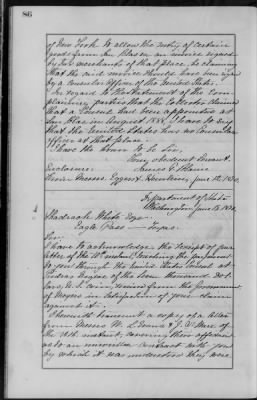 86
of New York to allow the entry of certain
goods from San Blas, on an invoice signed
by two merchants of that place, he claiming
that the said invoice should have been signed
by a Consular Officer of the United States.
In regard to the statement of the com-
plaining parties that the Collector claimed
that a Consul had been appointed at
San Blas in August 1888, I have to say
that the United States has no Consular
office at that place.
I have the honor to be Sir,
Your obedient servant,
James G. Blaine
Enclosure:
From Messrs. Eggers & Heinlein, June 12, 1890.
Department of State
Washington, June 18, 1890.
Shadrach White Esqr.
Eagle Pass — Texas.
Sir:
I have to acknowledge the receipt of your
letter of the instant, touching the payment
to you through the United States Consul at
Piedras Negras of the One thousand Dol-
lars, U.S. coin, received from the Government
of Mexico in satisfaction of your claim
against it.
I herewith transmit a copy of a letter
from Messrs
of the 16th instant, covering their affidavit
as to an contract with you
by which it was understood they were